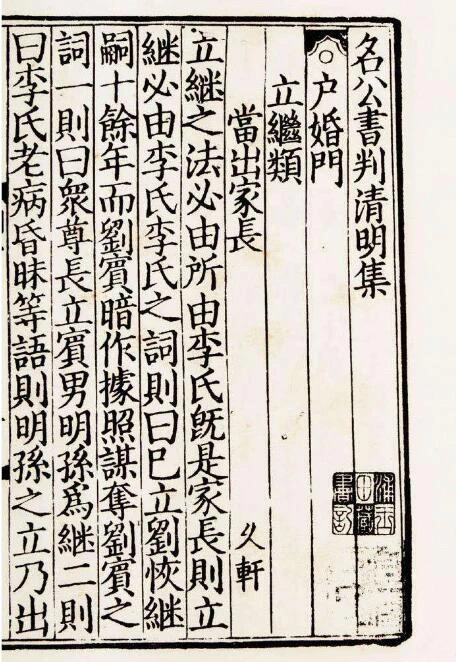 名公書判清明集
户婚門
立繼類
當出家長
乆軒
立繼之法必由所由李氏旣是家長則立
繼必由李氏李氏之詞則曰已立劉恢繼
嗣十餘年而劉賓暗作據照謀奪劉賓之
詞一則曰衆尊長立賓男明孫爲繼二則
曰李氏老病昏昧等語則明孫之立乃出